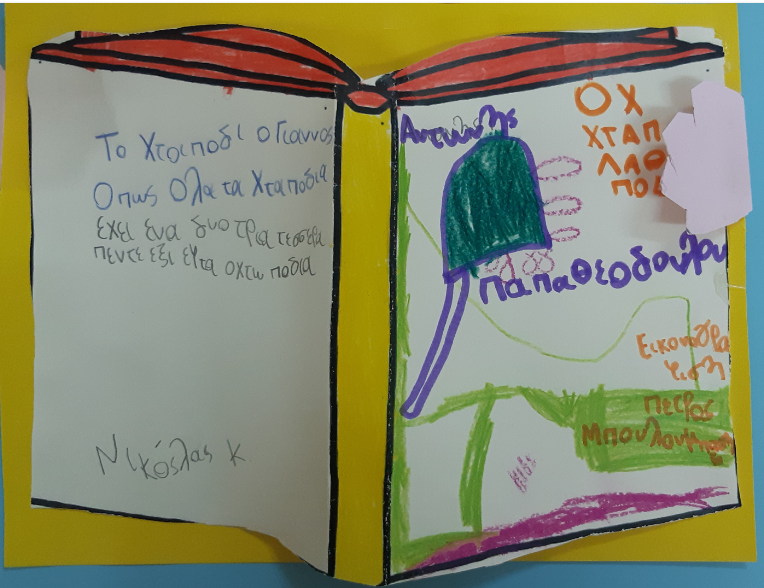 Το Χταποδι ο Γιαννος
Οπως Ολα τα Χταποδια
εχει ενα δυο τρια τεσσερα
πεντε εξι εφτα οχτω ποδια
Νικόλας Κ
Αντώνης
ΟΧ
ΧΤΑΠ
ΛΑΘ
ΠΟΔ
Παπαθεοδουλου
Εικονογρα
φιση
Πετρος
Μπουλουμπασ